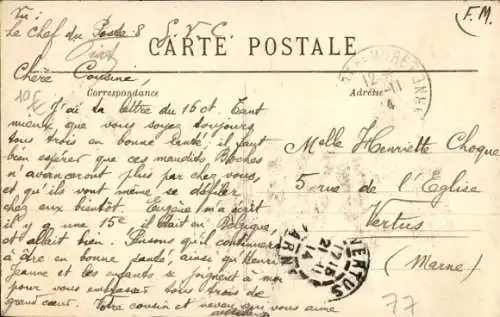 Vu :
Le Chef du Poste 8
G. V. C.
F.M.
CARTE POSTALE
Correspondance
Adresse
Chère Cousine,
J'ai ta lettre du 16 ct. Tant
mieux que vous soyez toujours
tous trois en bonne santé; il faut
bien espérer que ces maudits Boches
n'avanceront plus par chez vous
et qu'ils vont même se défiler
chez eux bientôt. Eugène m'a écrit
il y a une 15e il était en Belgique,
et allait bien. Pensons qu'il continuera
à être en bonne santé, ainsi qu'Henri
Jeanne et les enfants se joignent à moi
pour vous embrasser tous trois de
grand cœur. Votre cousin et neveu qui vous aime
Melle Henriette Choque
5 rue de l'Eglise
Vertus
(Marne)
VERTUS
17 15
21 - 11
14
MARNE
77